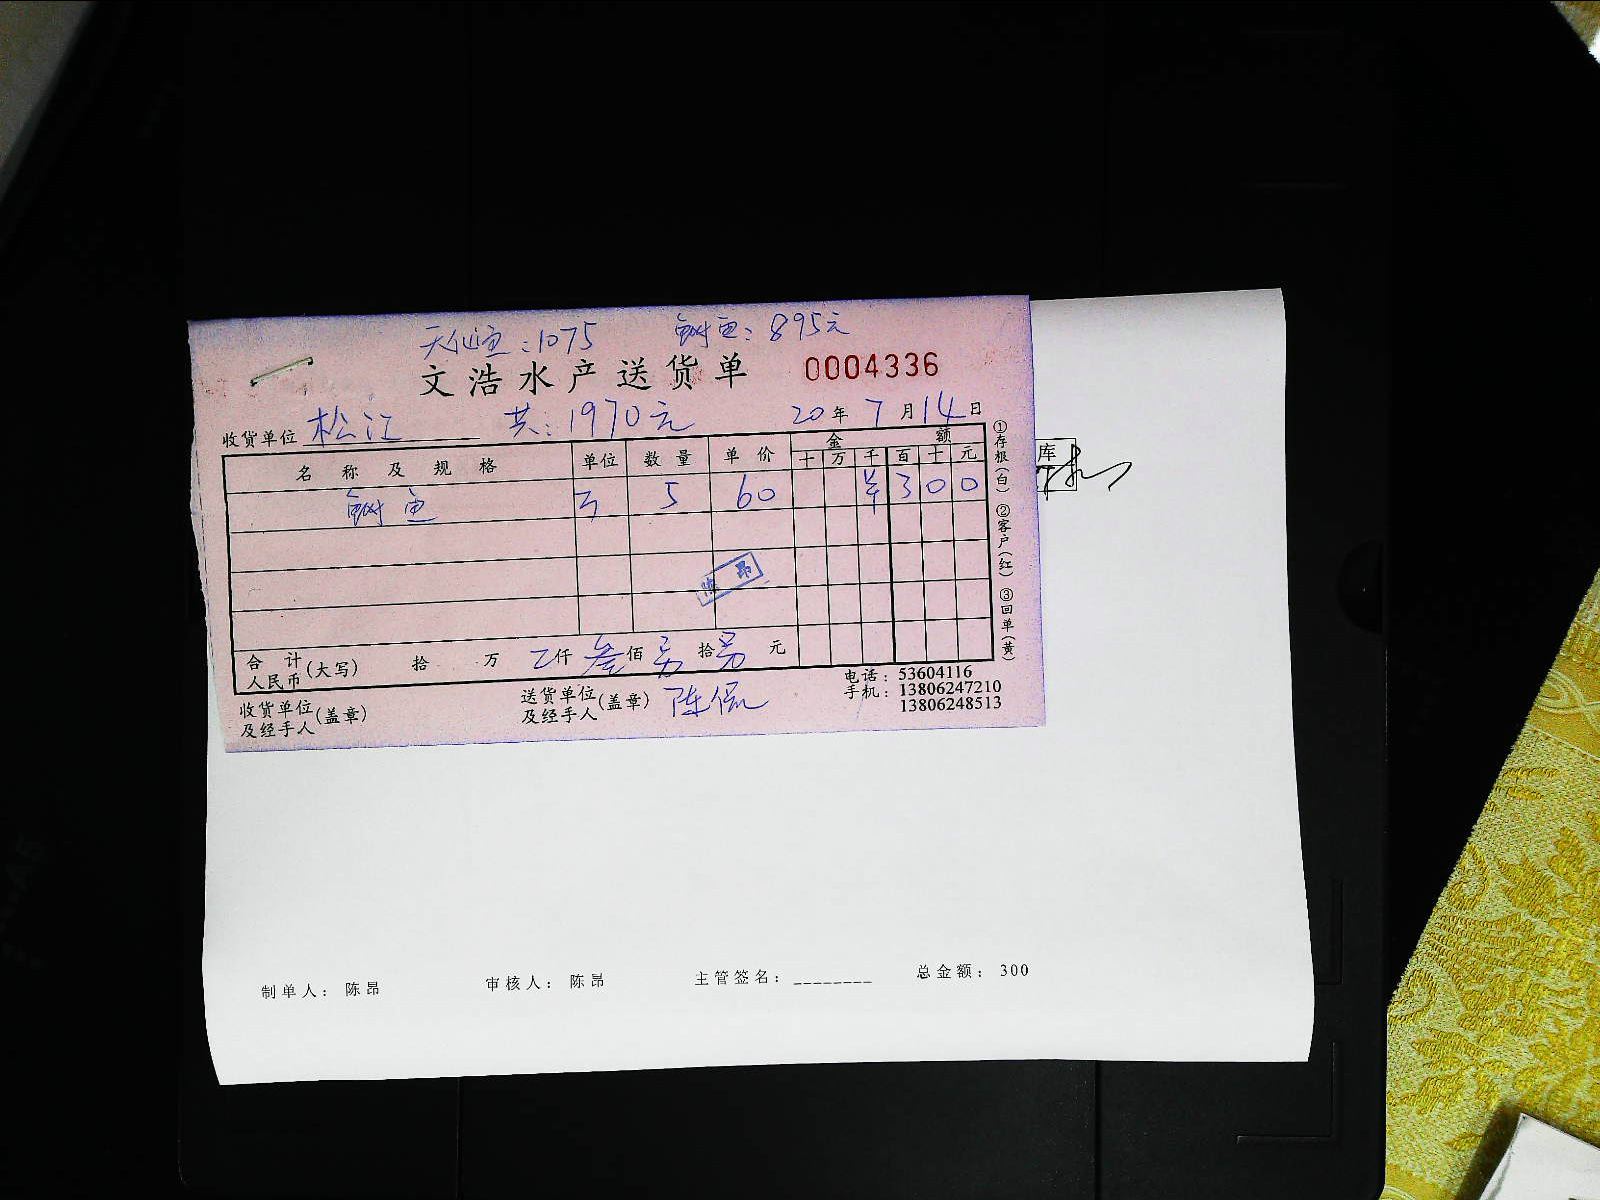 天仙鱼:1075 鲥鱼:895元
文浩水产送货单 0004336
收货单位 松江 共:1970元 20年7月14日
名称及规格 单位 数量 单价 金额
十 万 千 百 十 元
鲥鱼 5 60 ¥ 3 0 0
陈昂
合计人民币(大写) 拾 万 仟 叁佰 另拾 另元
收货单位及经手人(盖章) 送货单位及经手人(盖章) 陈侃
电话:53604116
手机:13806247210
13806248513
①存根(白) ②客户(红) ③回单(黄)
库
制单人: 陈昂 审核人: 陈昂 主管签名:________ 总金额: 300